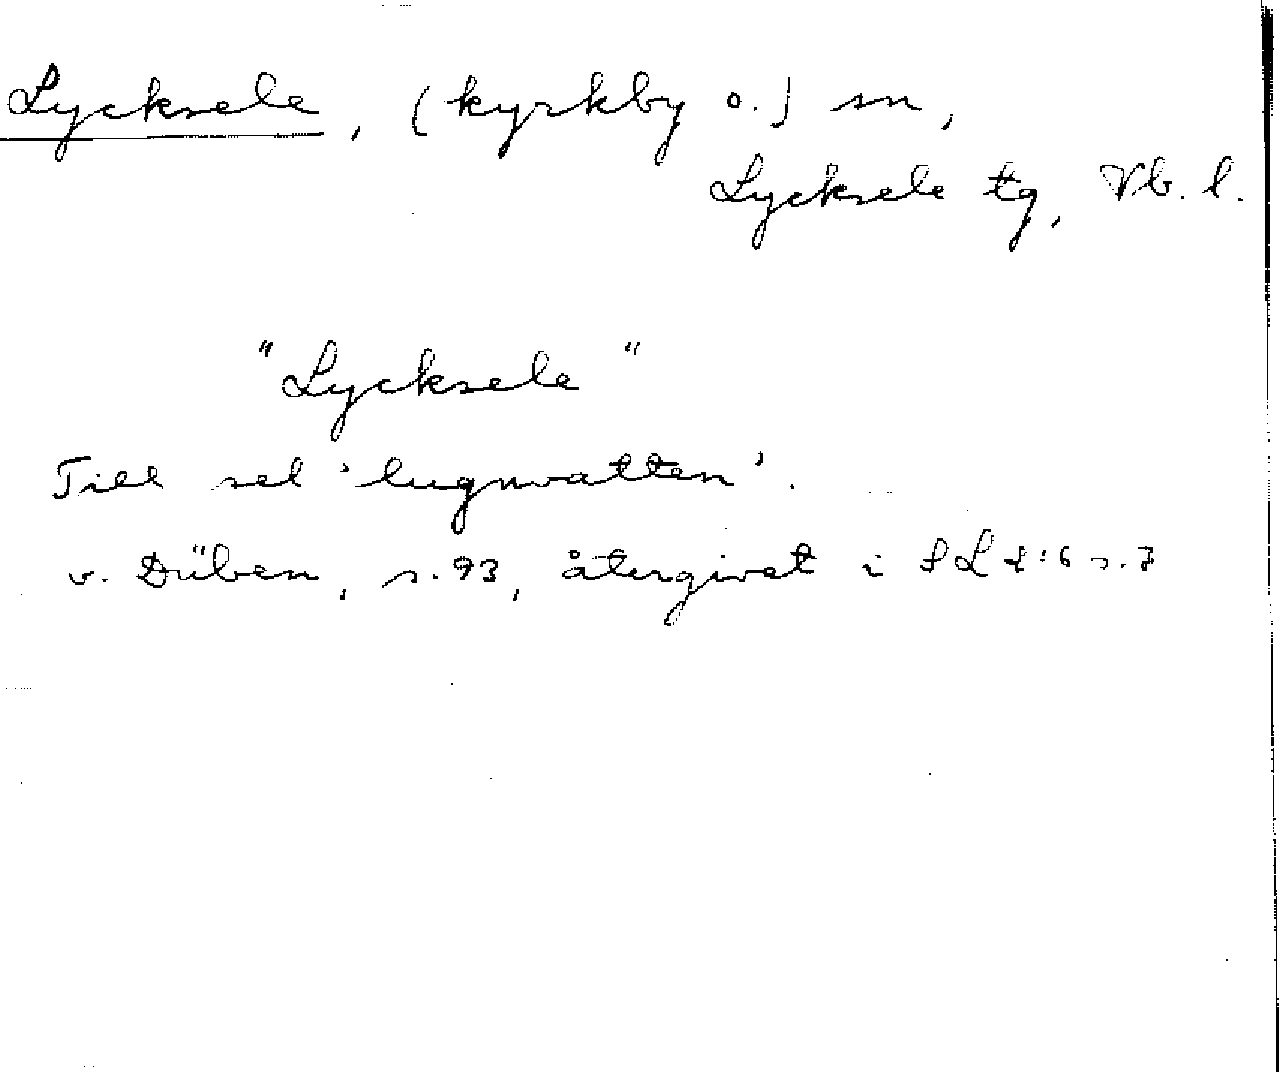 Lycksele, (kyrkby o.) sn,
Lycksele tg, Vb. l.
"Lycksele"
Till sel 'lugnvatten'.
v. Düben, s. 93, återgivet i